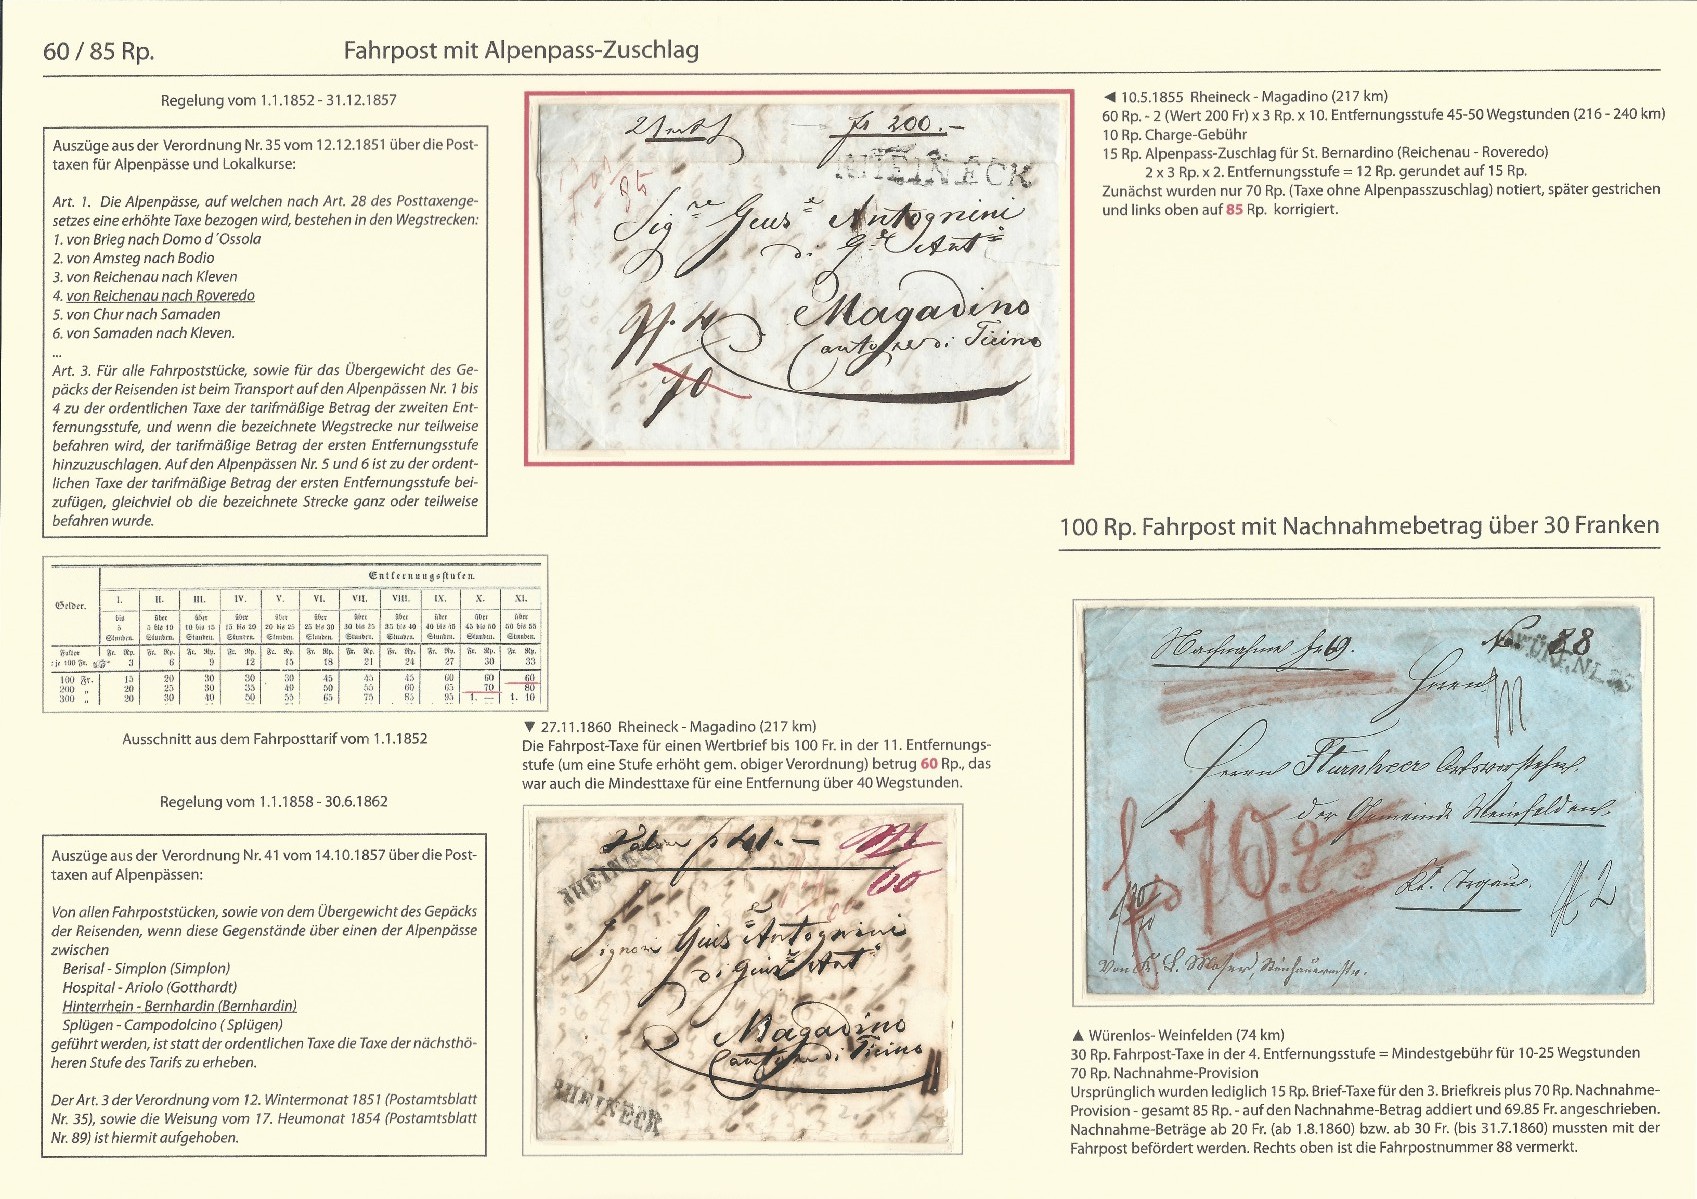 60 / 85 Rp.
Fahrpost mit Alpenpass-Zuschlag
Regelung vom 1.1.1852 - 31.12.1857
Auszüge aus der Verordnung Nr. 35 vom 12.12.1851 über die Post-
taxen für Alpenpässe und Lokalkurse:
Art. 1. Die Alpenpässe, auf welchen nach Art. 28 des Posttaxenge-
setzes eine erhöhte Taxe bezogen wird, bestehen in den Wegstrecken:
1. von Brieg nach Domo d´Ossola
2. von Amsteg nach Bodio
3. von Reichenau nach Kleven
4. von Reichenau nach Roveredo
5. von Chur nach Samaden
6. von Samaden nach Kleven.
...
Art. 3. Für alle Fahrpoststücke, sowie für das Übergewicht des Ge-
päcks der Reisenden ist beim Transport auf den Alpenpässen Nr. 1 bis
4 zu der ordentlichen Taxe der tarifmäßige Betrag der zweiten Ent-
fernungsstufe, und wenn die bezeichnete Wegstrecke nur teilweise
befahren wird, der tarifmäßige Betrag der ersten Entfernungsstufe
hinzuzuschlagen. Auf den Alpenpässen Nr. 5 und 6 ist zu der ordent-
lichen Taxe der tarifmäßige Betrag der ersten Entfernungsstufe bei-
zufügen, gleichviel ob die bezeichnete Strecke ganz oder teilweise
befahren wurde.
Entfernungsstufen.
Gelder.
I. II. III. IV. V. VI. VII. VIII. IX. X. XI.
bis über über über über über über über über über über
5 5 bis 10 10 bis 15 15 bis 20 20 bis 25 25 bis 30 30 bis 35 35 bis 40 40 bis 45 45 bis 50 50 bis 55
Stunden. Stunden. Stunden. Stunden. Stunden. Stunden. Stunden. Stunden. Stunden. Stunden. Stunden.
Faktor Fr. Rp. Fr. Rp. Fr. Rp. Fr. Rp. Fr. Rp. Fr. Rp. Fr. Rp. Fr. Rp. Fr. Rp. Fr. Rp. Fr. Rp.
je 100 Fr. 3 6 9 12 15 18 21 24 27 30 33
100 Fr. 15 20 30 30 30 45 45 45 60 60 60
200 „ 20 25 30 35 40 50 55 60 65 70 80
300 „ 20 30 40 50 55 65 75 85 95 1. — 1. 10
Ausschnitt aus dem Fahrposttarif vom 1.1.1852
Regelung vom 1.1.1858 - 30.6.1862
Auszüge aus der Verordnung Nr. 41 vom 14.10.1857 über die Post-
taxen auf Alpenpässen:
Von allen Fahrpoststücken, sowie von dem Übergewicht des Gepäcks
der Reisenden, wenn diese Gegenstände über einen der Alpenpässe
zwischen
Berisal - Simplon (Simplon)
Hospital - Ariolo (Gotthardt)
Hinterrhein - Bernhardin (Bernhardin)
Splügen - Campodolcino ( Splügen)
geführt werden, ist statt der ordentlichen Taxe die Taxe der nächsthö-
heren Stufe des Tarifs zu erheben.
Der Art. 3 der Verordnung vom 12. Wintermonat 1851 (Postamtsblatt
Nr. 35), sowie die Weisung vom 17. Heumonat 1854 (Postamtsblatt
Nr. 89) ist hiermit aufgehoben.
fr 200.-
RHEINECK
85
Sig.re Gius.e Antognini
di G.e Ant.o
Magadino
Cantone di Ticino
70
◄ 10.5.1855 Rheineck - Magadino (217 km)
60 Rp. - 2 (Wert 200 Fr) x 3 Rp. x 10. Entfernungsstufe 45-50 Wegstunden (216 - 240 km)
10 Rp. Charge-Gebühr
15 Rp. Alpenpass-Zuschlag für St. Bernardino (Reichenau - Roveredo)
2 x 3 Rp. x 2. Entfernungsstufe = 12 Rp. gerundet auf 15 Rp.
Zunächst wurden nur 70 Rp. (Taxe ohne Alpenpasszuschlag) notiert, später gestrichen
und links oben auf 85 Rp. korrigiert.
▼ 27.11.1860 Rheineck - Magadino (217 km)
Die Fahrpost-Taxe für einen Wertbrief bis 100 Fr. in der 11. Entfernungs-
stufe (um eine Stufe erhöht gem. obiger Verordnung) betrug 60 Rp., das
war auch die Mindesttaxe für eine Entfernung über 40 Wegstunden.
60
RHEINECK
Signori Gius.e Antognini
di Gius.e Ant.o
Magadino
Cantone di Ticino
RHEINECK
100 Rp. Fahrpost mit Nachnahmebetrag über 30 Franken
Nachnahme fr 69.
No 88
WÜRENLOS
Herrn
Herrn Thurnheer Ortsvorsteher
der Gemeinde Weinfelden.
70.85
Kt. Trgau.
▲ Würenlos- Weinfelden (74 km)
30 Rp. Fahrpost-Taxe in der 4. Entfernungsstufe = Mindestgebühr für 10-25 Wegstunden
70 Rp. Nachnahme-Provision
Ursprünglich wurden lediglich 15 Rp. Brief-Taxe für den 3. Briefkreis plus 70 Rp. Nachnahme-
Provision - gesamt 85 Rp. - auf den Nachnahme-Betrag addiert und 69.85 Fr. angeschrieben.
Nachnahme-Beträge ab 20 Fr. (ab 1.8.1860) bzw. ab 30 Fr. (bis 31.7.1860) mussten mit der
Fahrpost befördert werden. Rechts oben ist die Fahrpostnummer 88 vermerkt.